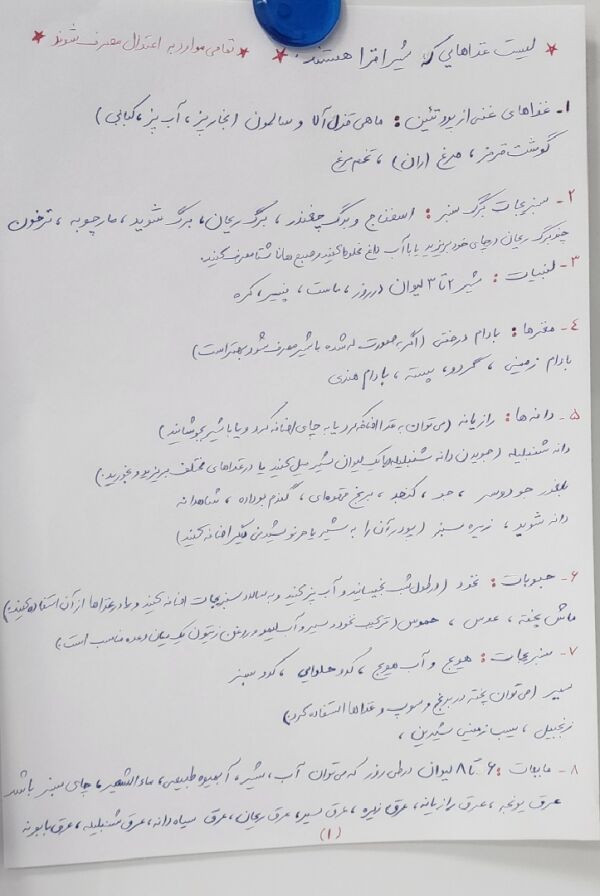 * لیست غذاهایی که شیرافزا هستند: * * تمامی موارد به اعتدال مصرف شوند *
۱- غذاهای غنی از پروتئین: ماهی قزل آلا و سالمون (بخارپز، آب پز، کبابی)
گوشت قرمز، مرغ (ران)، تخم مرغ
۲- سبزیجات برگ سبز: اسفناج و برگ چغندر، برگ ریحان، برگ شوید، مارچوبه، ترخون
چند برگ ریحان در چای خود بریزید یا با آب داغ مخلوط کنید و صبح ها ناشتا مصرف کنید.
۳- لبنیات: شیر ۲ تا ۳ لیوان در روز، ماست، پنیر، کره
۴- مغزها: بادام درختی (اگر به صورت له شده با شیر مصرف شود بهتر است)
بادام زمینی، گردو، پسته، بادام هندی
۵- دانه ها: رازیانه (می توان به غذا اضافه کرد یا به چای اضافه کرد و یا با شیر بجوشانید)
دانه شنبلیله (جویدن دانه شنبلیله با یک لیوان شیر میل کنید یا در غذاهای مختلف بریزید و بخورید.)
بلغور جو دوسر، جو، کنجد، برنج قهوه ای، گندم بوداده، شاهدانه
دانه شوید، زیره سبز (پودر آن را به شیر یا هر نوشیدنی دیگر اضافه کنید)
۶- حبوبات: نخود (در طول شب بخیسانید و آب پز کنید و به سالاد سبزیجات اضافه کنید و یا در غذاها از آن استفاده کنید.)
ماش پخته، عدس، حموس (ترکیب نخود و سیر و آب لیمو و روغن زیتون یک میان وعده مناسب است.)
۷- سبزیجات: هویج و آب هویج، کدو حلوایی، کدو سبز
سیر (می توان پخته در برنج و سوپ و غذاها استفاده کرد)
زنجبیل، سیب زمینی شیرین،
۸- مایعات: ۶ تا ۸ لیوان در طی روز که می توان آب، شیر، آبمیوه طبیعی، ماءالشعیر، چای سبز باشد
عرق یونجه، عرق رازیانه، عرق زیره، عرق سیر، عرق ریحان، عرق سیاه دانه، عرق شنبلیله، عرق بابونه
(۱)